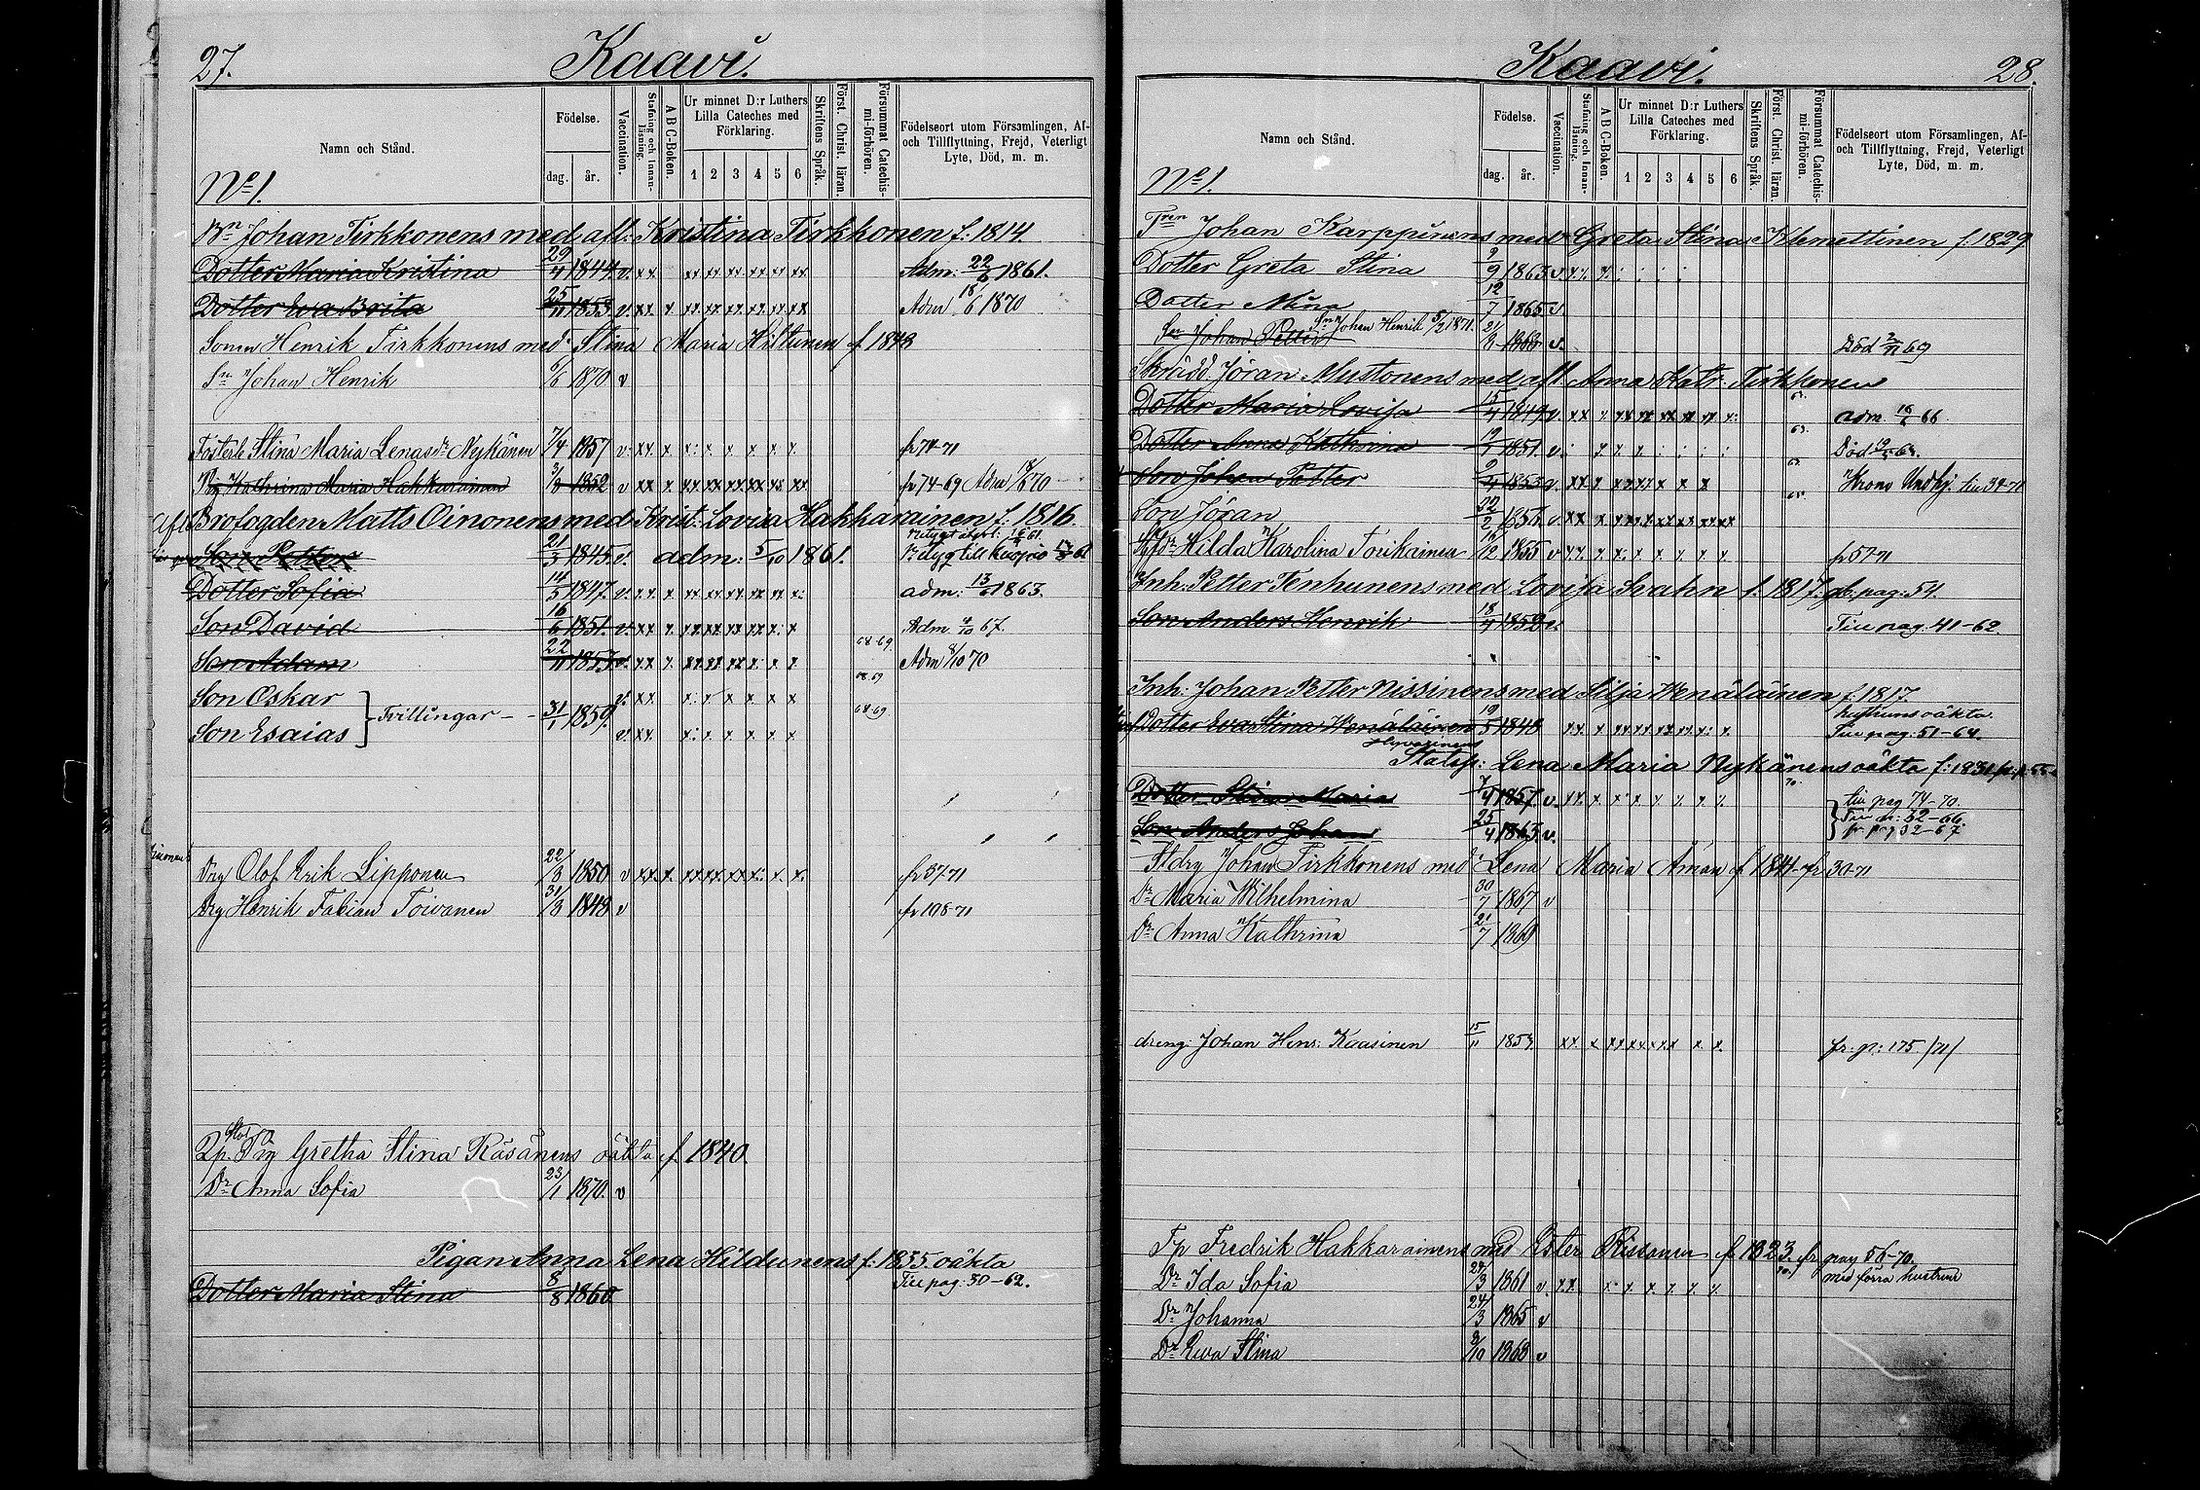 27.
Kaavi.
Namn och Stånd.
Födelse.
dag.
år.
Vaccination.
Stafning och Innan-
läsning.
A B C-Boken.
Ur minnet D:r Luthers
Lilla Cateches med
Förklaring.
1 2 3 4 5 6
Skriftens Språk.
Först. Christ. läran.
Försummat Catechis-
mi-förhören.
Födelseort utom Församlingen, Af-
och Tillflyttning, Frejd, Veterligt
Lyte, Död, m. m.
No 1.
Bn Johan Tirkkonens med afl: Kristina Tirkkonen f: 1814.
Dotter Maria Kristina 29/4 1844 v. xx xx xx xx xx xx xx Adm: 22/6 1861.
Dotter Eva Brita 25/11 1853 v. xx x xx xx xx xx xx xx Adm 18/6 1870
Sonen Henrik Tirkkonens med Stina Maria Hiltunen f 1848
Sn Johan Henrik 6/6 1870 v
Stina Maria Lenasdr Nykänen 7/4 1857 v xx x x: x x x x x fr 74-71
Pig Kathrina Maria Hakkarainen 3/3 1852 v xx x xx xx xx xx xx xx fr 74-69 Adm 18/6 70
Brologden Matts Oinonens med Krist: Lovisa Hakkarainen f: 1816
Son Petter 21/3 1845 v. adm: 5/10 1861.
Dotter Sofia 14/5 1847 v. xx x xx xx xx xx xx x: adm: 13/6 1863.
Son David 16/6 1851 v. xx x xx xx xx xx x: x Adm 4/10 67.
68-69.
Son Adam 22/11 1853 v. xx x. xx xx xx x: x x Adm 8/10 70
68-69
Son Oskar v. xx x: x x x x x
Tvillingar - - 31/1 1859.
68-69.
Son Esaias v. xx x: x x x x x
Drg Olof Erik Lipponen 22/3 1850 v xx x xx xx xx x: x x: fr 57-71
Drg Henrik Fabian Toivanen 31/3 1848 v fr 108-71
Gretha Stina Räsänens oäkta f. 1840.
Dr Anna Sofia 23/1 1870. v
Pigan Anna Lena Hildunens f: 1835. oäkta
Dotter Maria Stina 8/8 1860 Till pag: 30-62.
Kaavi.
28.
Namn och Stånd.
Födelse.
dag.
år.
Vaccination.
Stafning och Innan-
läsning.
A B C-Boken.
Ur minnet D:r Luthers
Lilla Cateches med
Förklaring.
1 2 3 4 5 6
Skriftens Språk.
Först. Christ. läran.
Försummat Catechis-
mi-förhören.
Födelseort utom Församlingen, Af-
och Tillflyttning, Frejd, Veterligt
Lyte, Död, m. m.
No 1.
Johan Karppinens med Greta Stina Klemettinen f. 1829
Dotter Greta Stina 9/9 1863 v x x x : : : :
Dotter Miina 12/7 1865 v
Sn Johan Henrik 5/2 1871.
Sn Johan Petter 21/8 1868 v. Död 2/11 69
Skrädd Jöran Mustonens med afl Anna Katr. Tirkkonen
Dotter Maria Lovisa 15/4 1849 v. xx x xx xx xx xx xx x: adm 16/6 66
Dotter Anna Kathrina 1851 v : x x x : : : :
Son Johan Petter 9/4 1853 v. xx x xx xx x x x till 39-71
Son Jöran 22/2 1856 v. xx x xx xx xx xx xx
Hilda Karolina Torikainen 16/12 1855 v xx x x: x x x x x fr 57-71
Inh: Petter Tenhunens med Lovisa Svahn f. 1817. gb pag: 54.
Son Anders Henrik 18/4 1852 v. Till pag. 41-62.
Inh: Johan Petter Nissinens med Silja Wenäläinen f. 1817.
hustruns oäkta.
Dotter Eva Stina Wenäläinen 19/5 1848 xx x xx xx xx xx x: x Till pag: 51-64.
Lena Maria Nykänens oäkta f: 1831
Dotter Stina Maria 7/4 1857 v xx x x x x x x x till pag 74-70.
Till 32-66
Son Anders Johan 25/4 1863 v. fr pag 32-67.
Johan Tirkkonens med Lena Maria Åman f 1841 fr 30-71
Dr Maria Wilhelmina 30/7 1867 v
Dr Anna Kathrina 21/7 1869
dreng: Johan Henr: Kaasinen 15/11 1854 xx x xx xx xx x x. fr. p: 175 /71/
Fredrik Hakkarainens med Ester Rissanen f 1823. fr pag 56-70.
med förra hustrun
Dr Ida Sofia 24/3 1861 v xx x: x x x x x
Dr Johanna 24/3 1865 v
Dr Eva Stina 3/10 1868 v